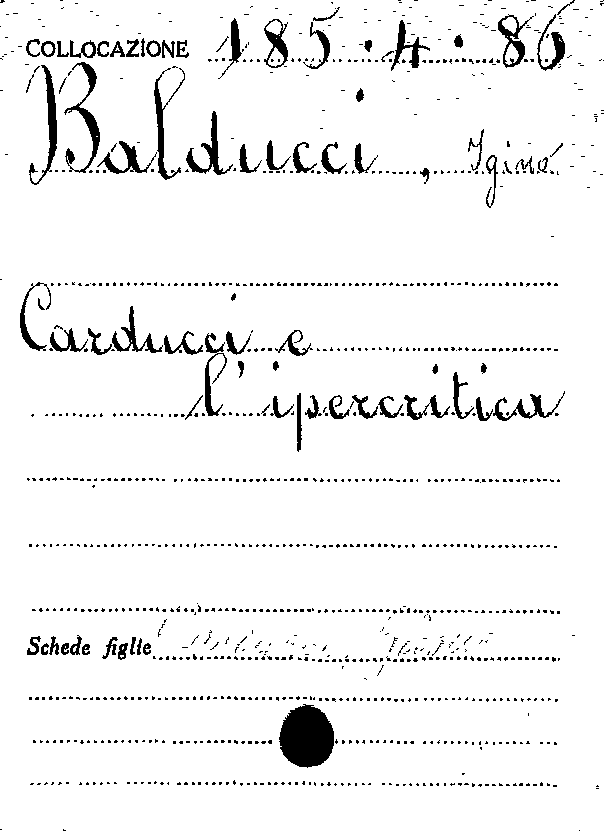 COLLOCAZIONE 185.4.86
Balducci, Igino
Carducci e
l'ipercritica
Schede figlie